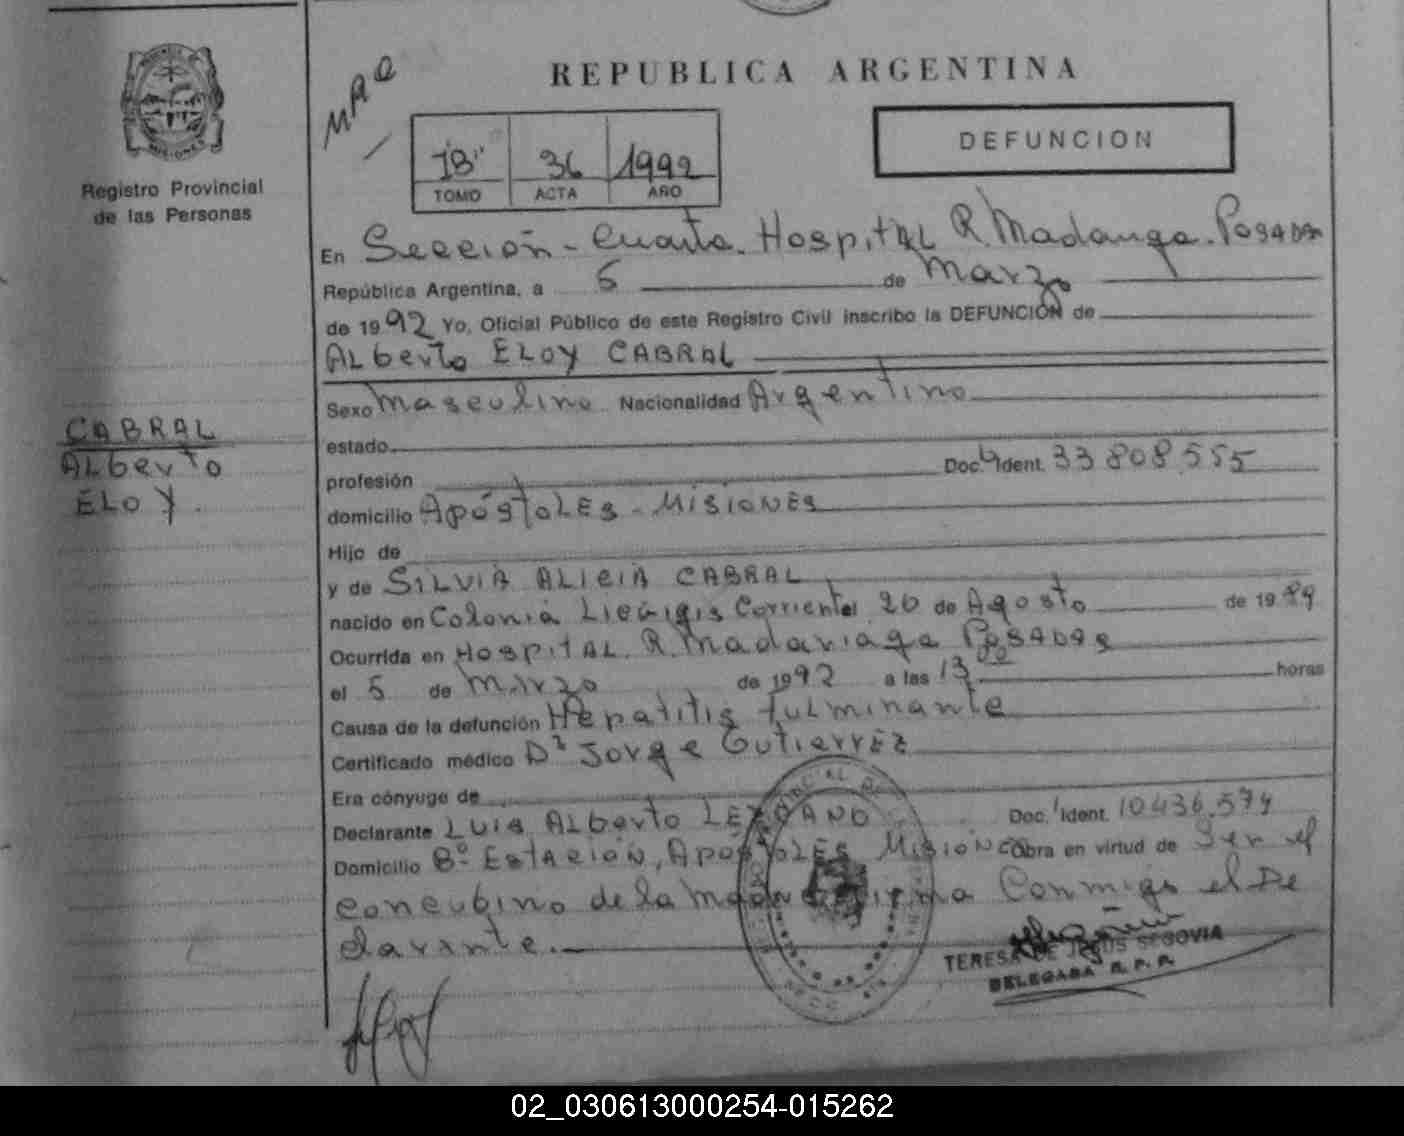 REPUBLICA ARGENTINA
MISIONES
Registro Provincial
de las Personas
"B" 36 1992
TOMO ACTA AÑO
DEFUNCION
En Sección - Cuarta. Hospital R. Madariaga. Posadas
República Argentina, a 5 de Marzo
de 1992 Yo, Oficial Público de este Registro Civil inscribo la DEFUNCIÓN de
ALberto ELOY CABRAL
CABRAL
ALberto
ELOY.
Sexo Masculino Nacionalidad Argentino
estado
profesión Doc. Ident. 33 808.555
domicilio Apóstoles - Misiones
Hijo de
y de SILVIA ALICIA CABRAL
nacido en Colonia Corrientes 20 de Agosto de 1989
Ocurrida en Hospital R. Madariaga Posadas
el 5 de Marzo de 1992 a las 13 00 horas
Causa de la defunción Hepatitis fulminante
Certificado médico Dr Jorge Gutierrez
Era cónyuge de
Declarante Luis Alberto LEZCANO Doc. Ident. 10436.574
Domicilio Bº Estación, Apóstoles Misiones Obra en virtud de Ser el
concubino de la Madre firma Conmigo el De
clarante.-
TERESA DE JESUS SEGOVIA
DELEGADA R. P. P.
02_030613000254-015262